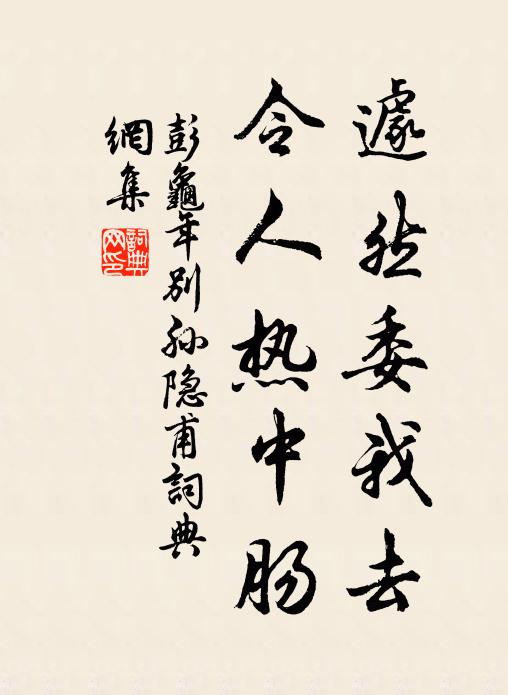 遽然委我去
令人热中肠
彭龜年别孙隐甫詞典
網集
詞典网印